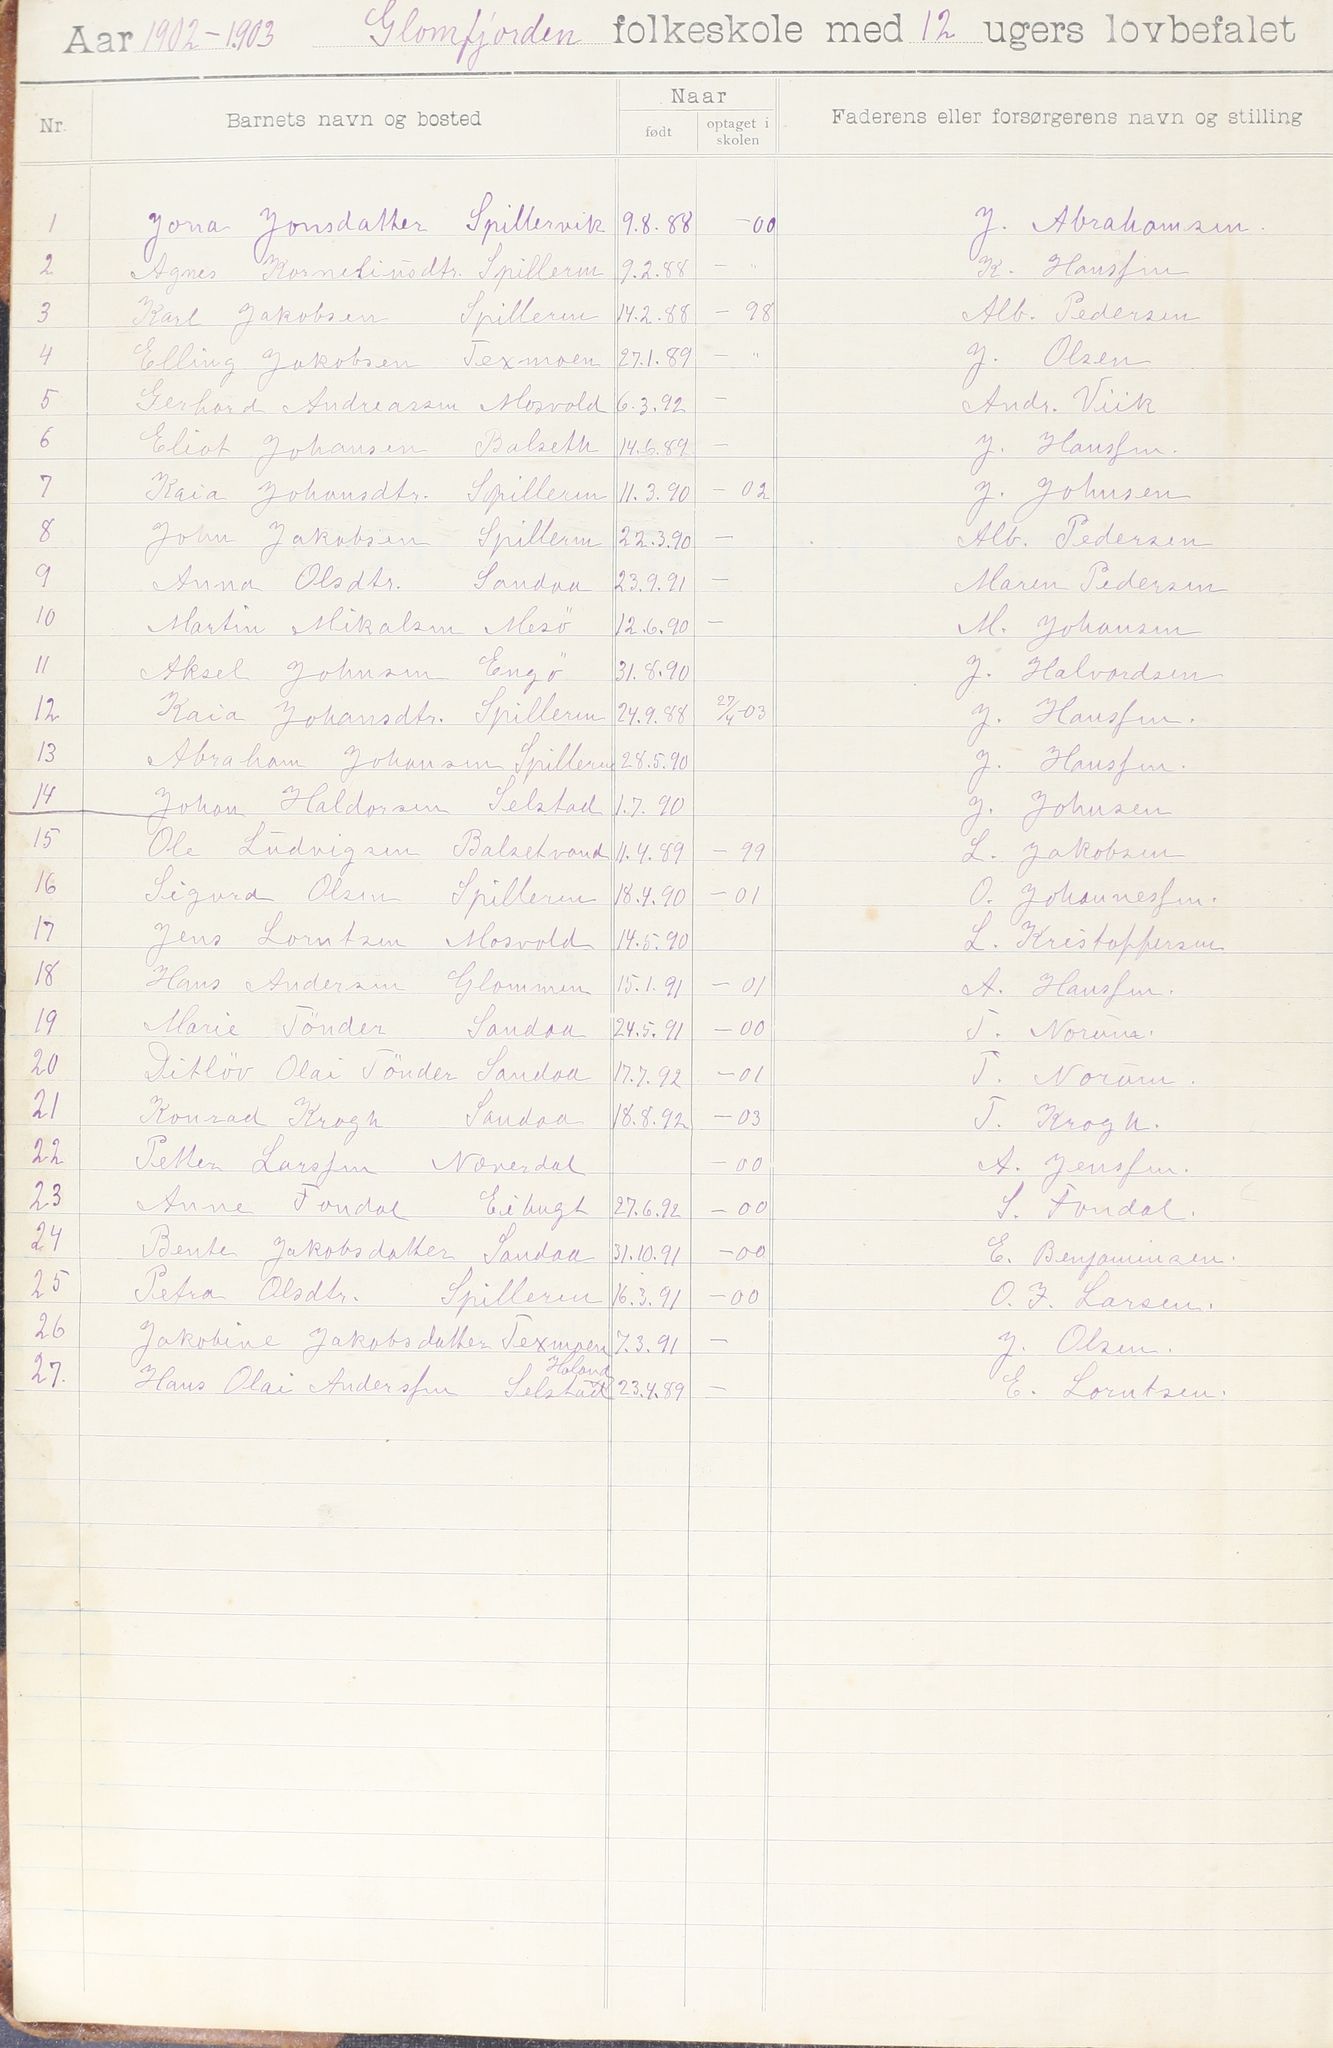 Aar 1902-1903 Glomfjorden folkeskole med 12 ugers lovbefalet
Nr. Barnets navn og bosted Naar Faderens eller forsørgerens navn og stilling
født optaget i skolen
1 Jona Jonsdatter Spillervik 9.8.88 -00 J. Abrahamsen.
2 Agnes Korneliusdtr. Spilleren 9.2.88 - " K. Hanssen
3 Karl Jakobsen Spilleren 14.2.88 - 98 Alb. Pedersen
4 Elling Jakobsen Texmoen 27.1.89 - " J. Olsen
5 Gerhard Andreassen Mosvold 6.3.92 - Andr. Viik
6 Eliot Johansen Balseth 14.6.89 - J. Hanssen.
7 Kaia Johansdtr. Spilleren 11.3.90 - 02 J. Johnsen
8 John Jakobsen Spilleren 22.3.90 - Alb. Pedersen
9 Anna Olsdtr. Sandaa 23.9.91 - Maren Pedersen
10 Martin Mikalsen Mesö 12.6.90 - M. Johansen
11 Aksel Johnsen Engö 31.8.90 J. Halvordsen
12 Kaia Johansdtr. Spilleren 24.9.88 27/4-03 J. Hanssen.
13 Abraham Johansen Spilleren 28.5.90 J. Hanssen.
14 Johan Haldorsen Selstad 1.7.90 J. Johnsen
15 Ole Ludvigsen Balsetvand 11.4.89 - 99 L. Jakobsen
16 Sigurd Olsen Spilleren 18.4.90 - 01 O. Johannessen.
17 Jens Lorntsen Mosvold 14.5.90 L. Kristoffersen
18 Hans Andersen Glommen 15.1.91 - 01 A. Hanssen.
19 Marie Tönder Sandaa 24.5.91 - 00 T. Norum.
20 Ditlöv Olai Tönder Sandaa 17.7.92 - 01 T. Norum.
21 Konrad Krogh Sandaa 18.8.92 - 03 T. Krogh.
22 Petter Larssen Næverdal - 00 A. Jenssen.
23 Anne Fondal Eibugt 27.6.92 - 00 S. Fondal.
24 Bente Jakobsdatter Sandaa 31.10.91 -00 E. Benjaminsen.
25 Petra Olsdtr. Spilleren 16.3.91 -00 O. J. Larsen.
26 Jakobine Jakobsdatter Texmoen 7.3.91 - J. Olsen.
Haland
27. Hans Olai Anderssen Selstad 23.4.89 - E. Lorntsen.